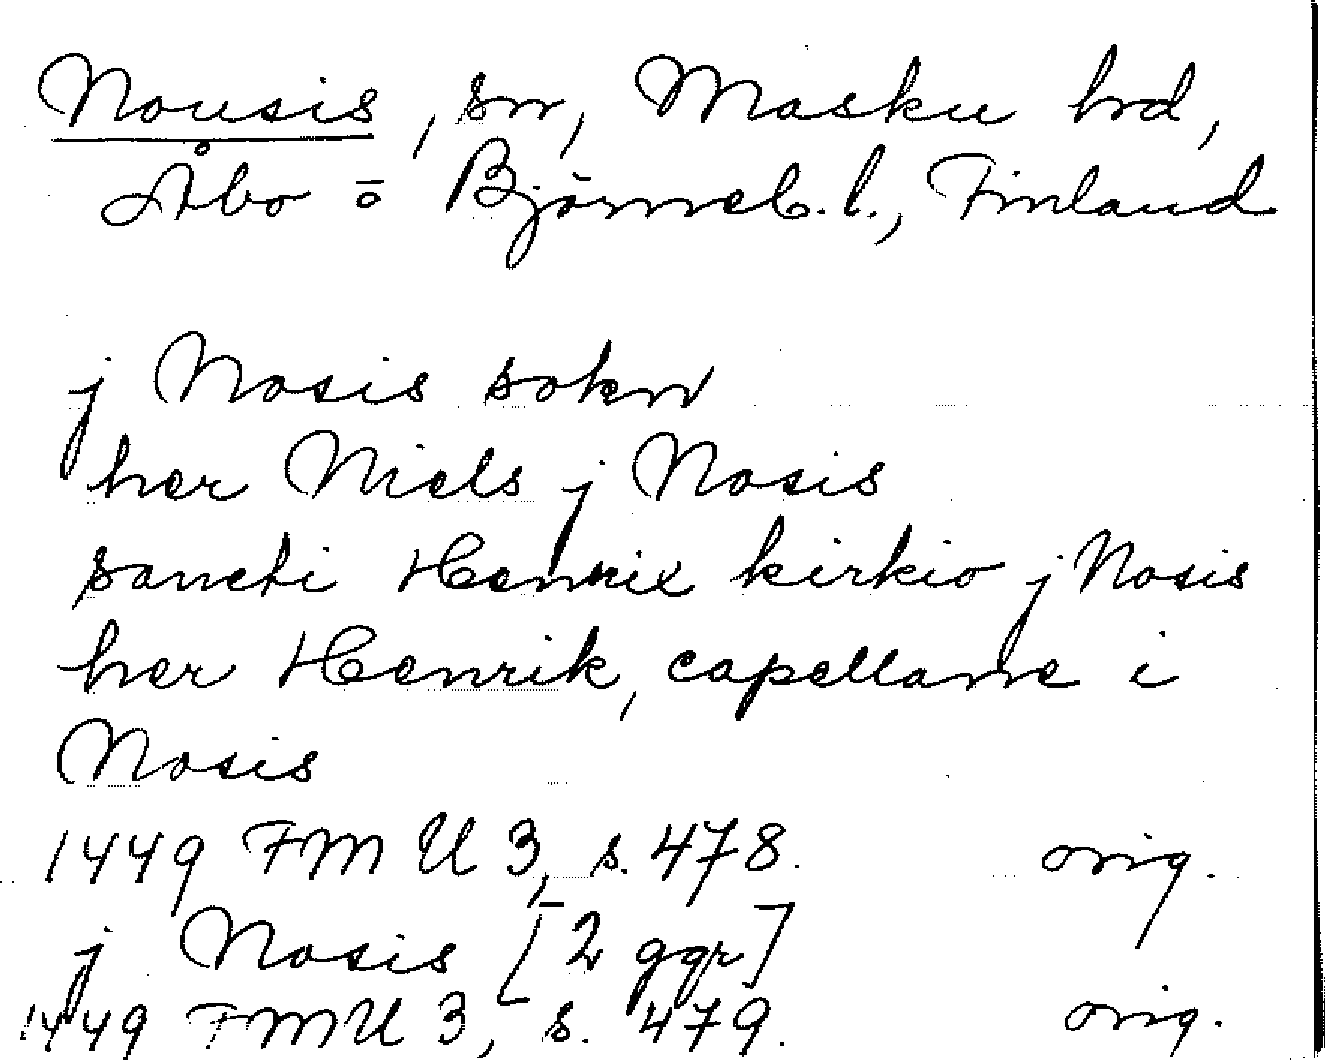 Nousis, sn, Masku hrd,
Åbo o Björneb. l., Finland
j Nosis sokn
her Niels j Nosis
sancti Henrix kirkio j Nosis
her Henrik, capellane i
Nosis
1449 FMU 3, s. 478. orig.
j Nosis [2 ggr]
1449 FMU 3, s. 479. orig.